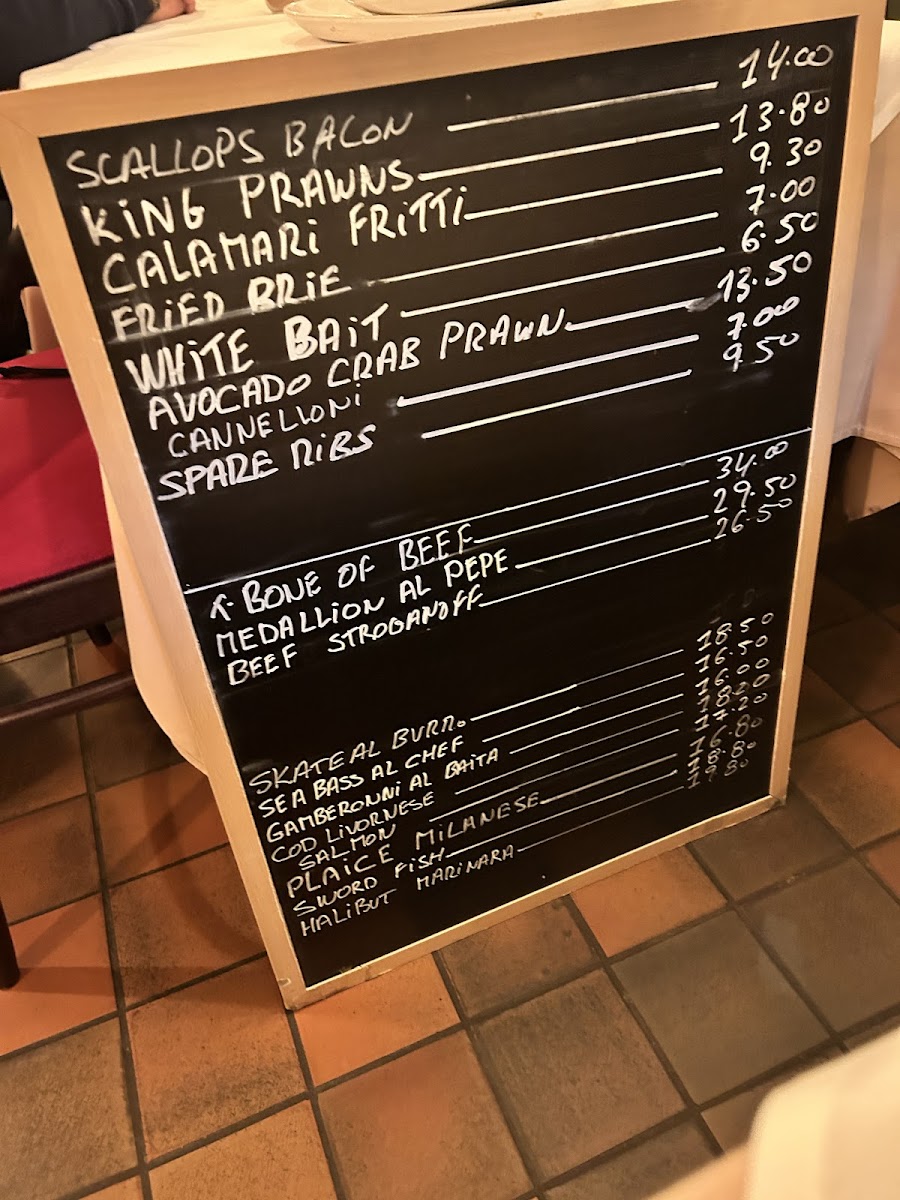 SCALLOPS BACON 14.00
KING PRAWNS 13.80
CALAMARI FRITTI 9.30
FRIED BRIE 7.00
WHITE BAIT 6.50
AVOCADO CRAB PRAWN 13.50
CANNELLONI 7.00
SPARE RIBS 9.50
T-BONE OF BEEF 34.00
MEDALLION AL PEPE 29.50
BEEF STROGANOFF 26.50
SKATE AL BURRO 18.50
SEA BASS AL CHEF 16.50
GAMBERONNI AL BAITA 16.00
COD LIVORNESE
SALMON 17.20
PLAICE MILANESE 16.80
SWORD FISH 18.80
HALIBUT MARINARA 19.80